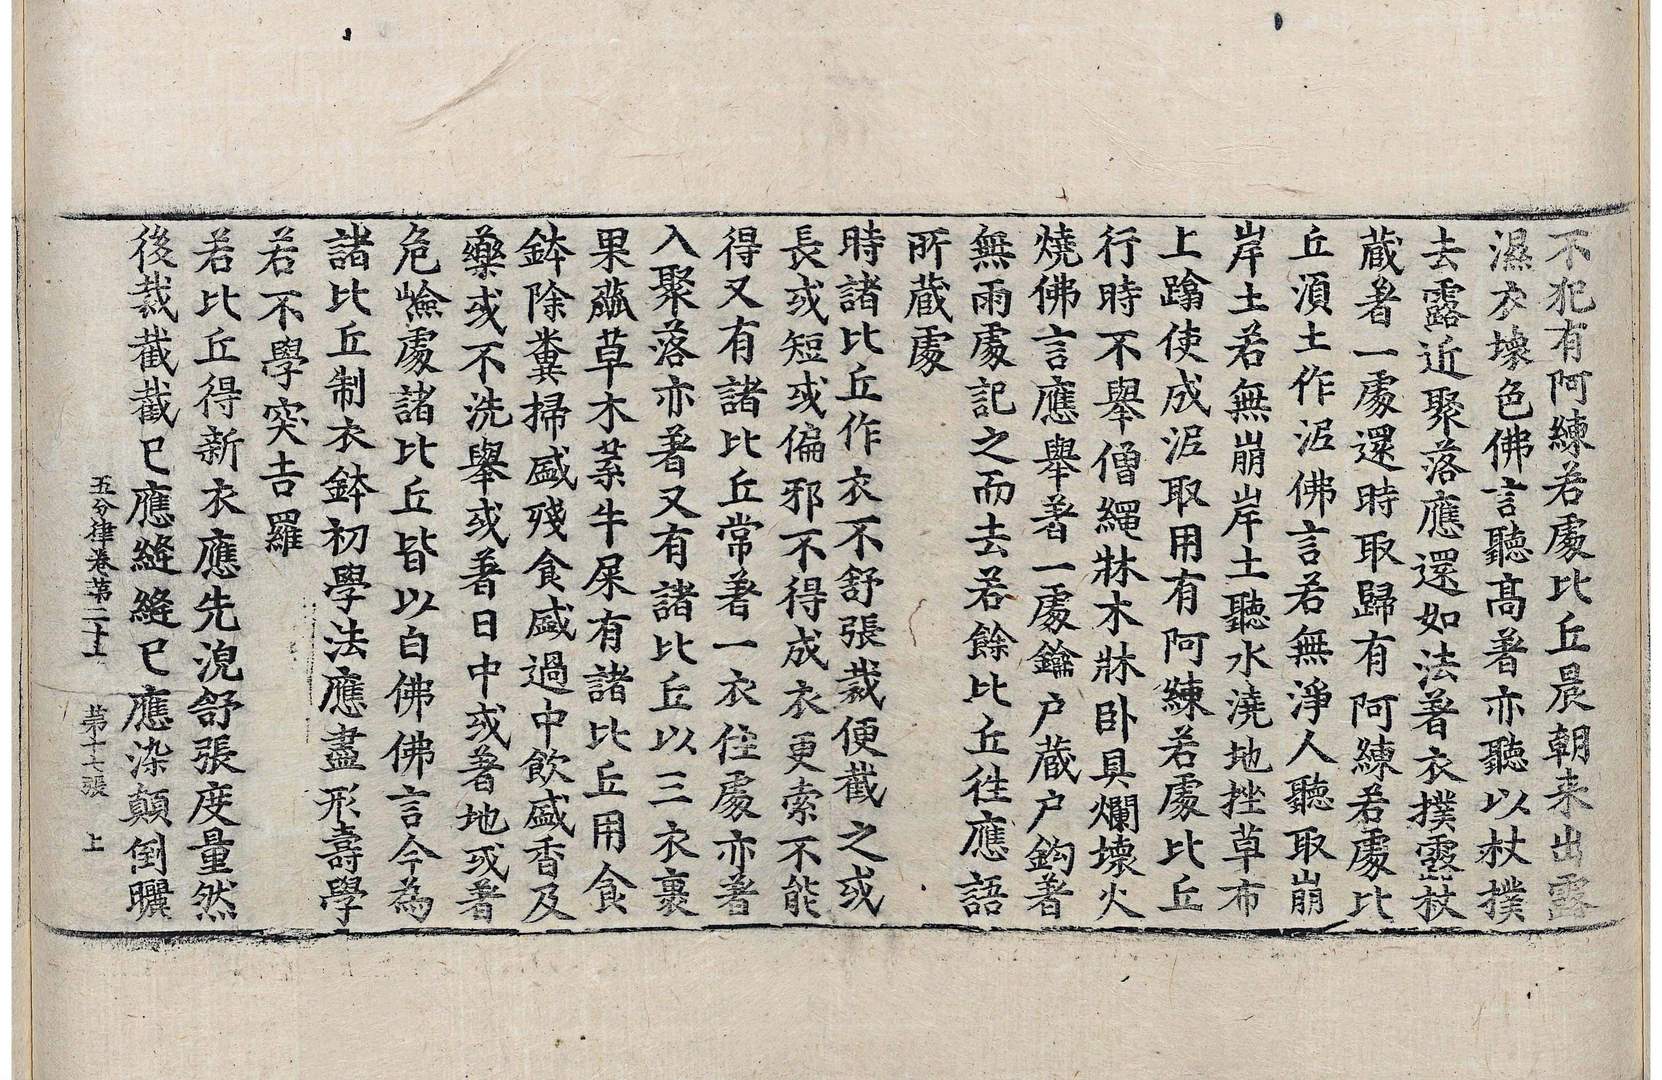 不犯有阿練若處比丘晨朝来出露
濕衣壞色佛言聽高著亦聽以杖撲
去露近聚落應還如法著衣撲露杖
蔵著一處還時取歸有阿練若處比
丘湏土作泥佛言若無淨人聽取崩
岸土若無崩岸岸土聽水澆地挫草布
上蹹使成泥取用有阿練若處比丘
行時不舉僧繩牀木牀卧具爛壞火
燒佛言應舉著一處鑰户蔵户鈎著
無雨處記之而去若餘比丘徃應語
所蔵處
時諸比丘作衣不舒張裁便截之或
長或短或偏邪不得成衣更索不能
得又有諸比丘常著一衣住處亦著
入聚落亦著又有諸比丘以三衣裹
果蓏草木葉牛屎有諸比丘用食
鉢除糞掃盛殘食盛過中飲盛香及
藥或不洗舉或著日中或著地或著
危嶮處諸比丘皆以白佛佛言今為
諸比丘制衣鉢初學法應盡形壽學
若不學突吉羅
若比丘得新衣應先浣舒張度量然
後裁截截已應縫縫已應染顛倒曬
五分律卷苐二十 苐十七張 上